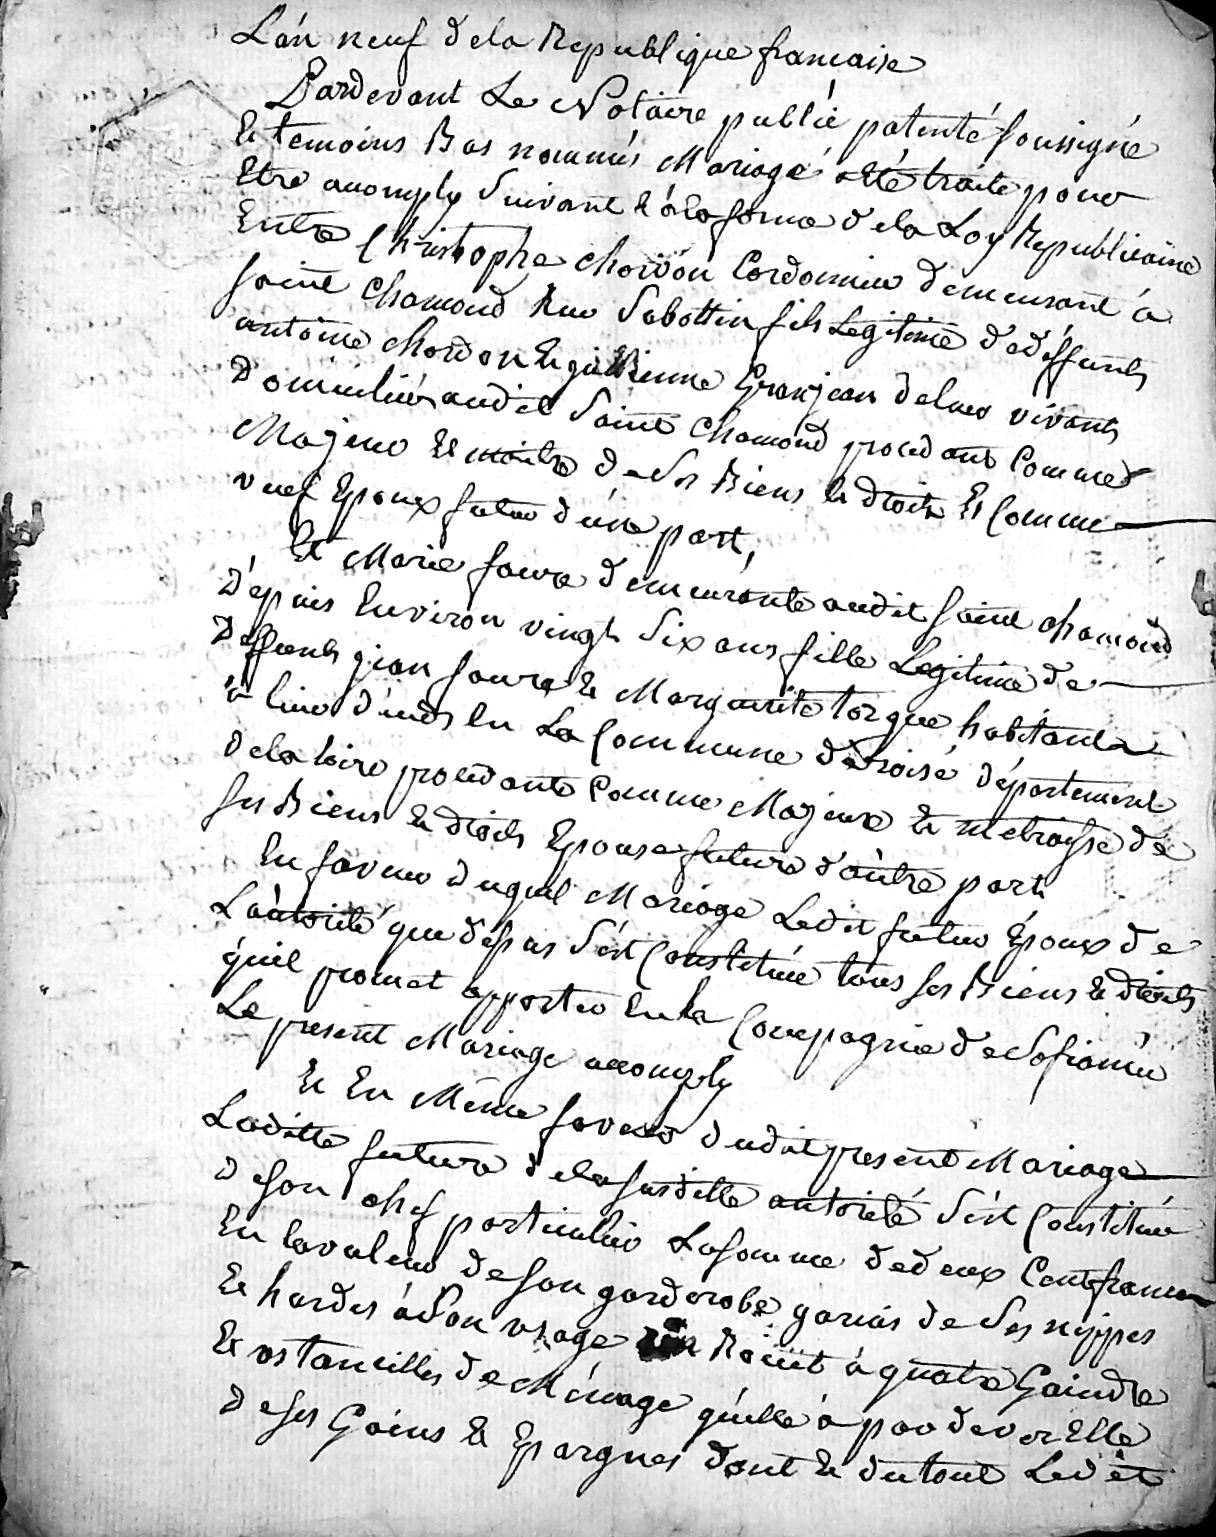 L'an neuf dela Republique francaise
Pardevant Le Notaire public patenté soussigné
Et temoins Bas nommés Mariage à été traite pour
Etre accomply suivant & à la forme dela Loy Republicaine
Entre Christophe chordon Cordonnier demeurant à
saint chamond Rue Sabottin fils Legitime dedeffunts
antoine chordon & Granjean deleur vivants
Domiciliés audit Saint chamond procedant Comme
Majeur & maitre de ses Biens & droits Et Comme
veuf Epoux futur d'une part,
Et Marie faure demeurante audit saint chamond
Dépuis Environ vingt Six ans fille Legitime de
Deffunts jean faure & Marguerite torgue habitants
à lieu en La Commune déroisé département
dela loire procedante Comme Majeure & metraysse de
ses Biens & droits Epouse future d'autre part
En faveur duquel Mariage Ledit futur Epoux de
L'autorité que dessus s'est Constitué tous ses Biens & droits
qu'il promet apporter En la Compagnie de sa fiancée
Le present Mariage accomply
Et En Même faveur dudit present Mariage
Laditte future dela susditte autorité s'est Constitué
de son chef particulier La somme dedeux Cent francs
En la valeur de son garderobe garnis de ses nippes
& hardes à son usage un Roüet à quatre Gaindre
& ostancilles de Ménage qu'elle à par dever Elle
de ses Gains & Epargnes dont & du tout Ledit